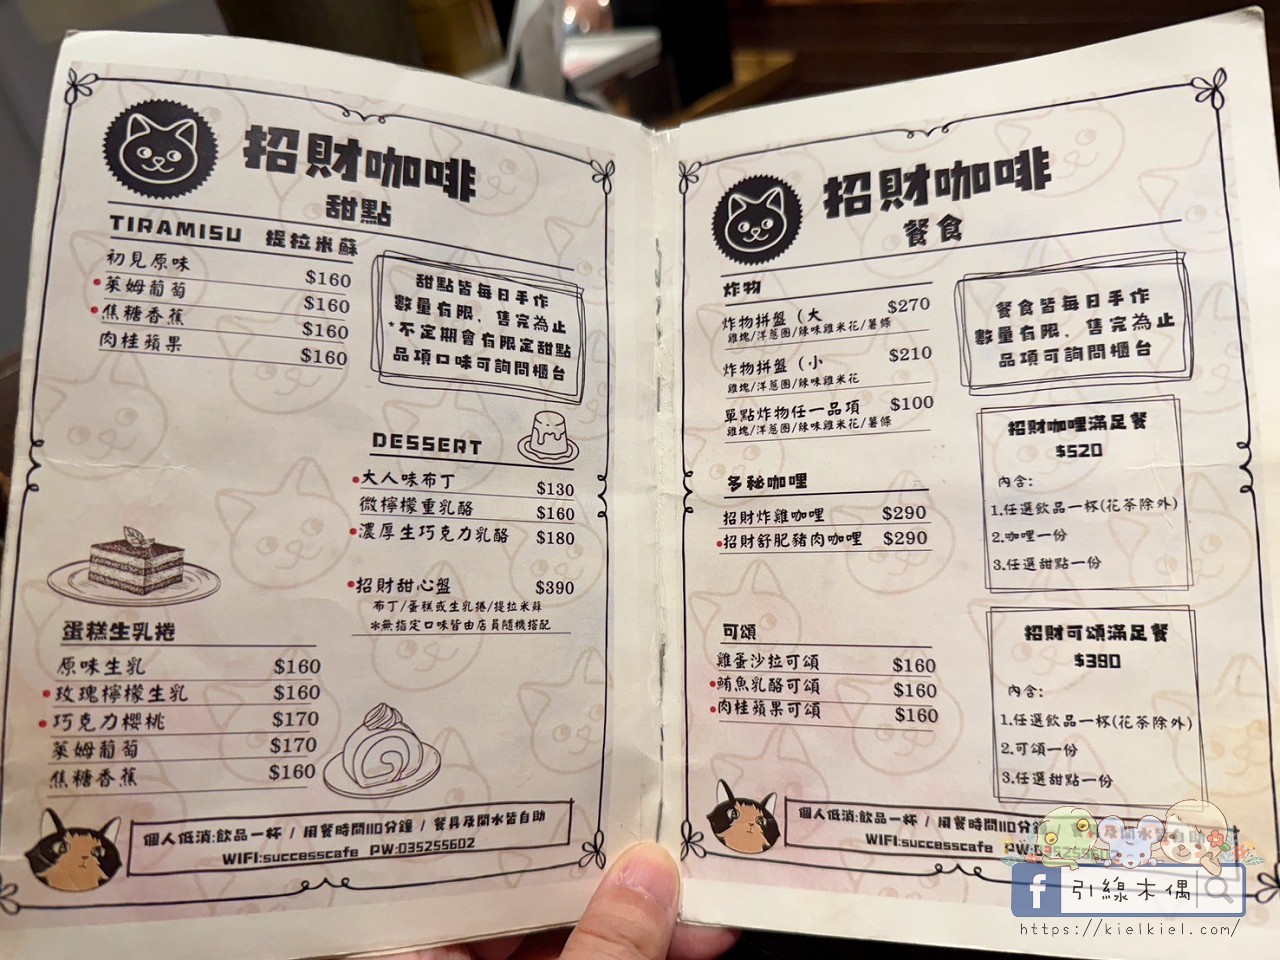 招財咖啡
甜點
TIRAMISU 提拉米蘇
初見原味 $160
萊姆葡萄 $160
焦糖香蕉 $160
肉桂蘋果 $160
甜點皆每日手作
數量有限，售完為止
*不定期會有限定甜點
品項口味可詢問櫃台
DESSERT
大人味布丁 $130
微檸檬重乳酪 $160
濃厚生巧克力乳酪 $180
招財甜心盤 $390
布丁/蛋糕或生乳捲/提拉米蘇
*無指定口味皆由店員隨機搭配
蛋糕生乳捲
原味生乳 $160
玫瑰檸檬生乳 $160
巧克力櫻桃 $170
萊姆葡萄 $170
焦糖香蕉 $160
個人低消:飲品一杯 / 用餐時間110分鐘 / 餐具及開水皆自助
WIFI:successcafe PW:035255602
招財咖啡
餐食
炸物
炸物拼盤（大 $270
雞塊/洋蔥圈/辣味雞米花/薯條
炸物拼盤（小 $210
雞塊/洋蔥圈/辣味雞米花
單點炸物任一品項 $100
雞塊/洋蔥圈/辣味雞米花/薯條
多秘咖哩
招財炸雞咖哩 $290
招財舒肥豬肉咖哩 $290
可頌
雞蛋沙拉可頌 $160
鮪魚乳酪可頌 $160
肉桂蘋果可頌 $160
餐食皆每日手作
數量有限，售完為止
品項可詢問櫃台
招財咖哩滿足餐
$520
內含:
1.任選飲品一杯(花茶除外)
2.咖哩一份
3.任選甜點一份
招財可頌滿足餐
$390
內含:
1.任選飲品一杯(花茶除外)
2.可頌一份
3.任選甜點一份
個人低消:飲品一杯 / 用餐時間110分鐘 / 餐具及開水皆自助
WIFI:successcafe PW:035255602
f 引線木偶
https://kielkiel.com/